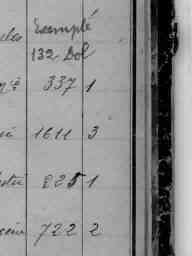 Exemplé
132 Dol
337 1
1611 3
225 1
722 2